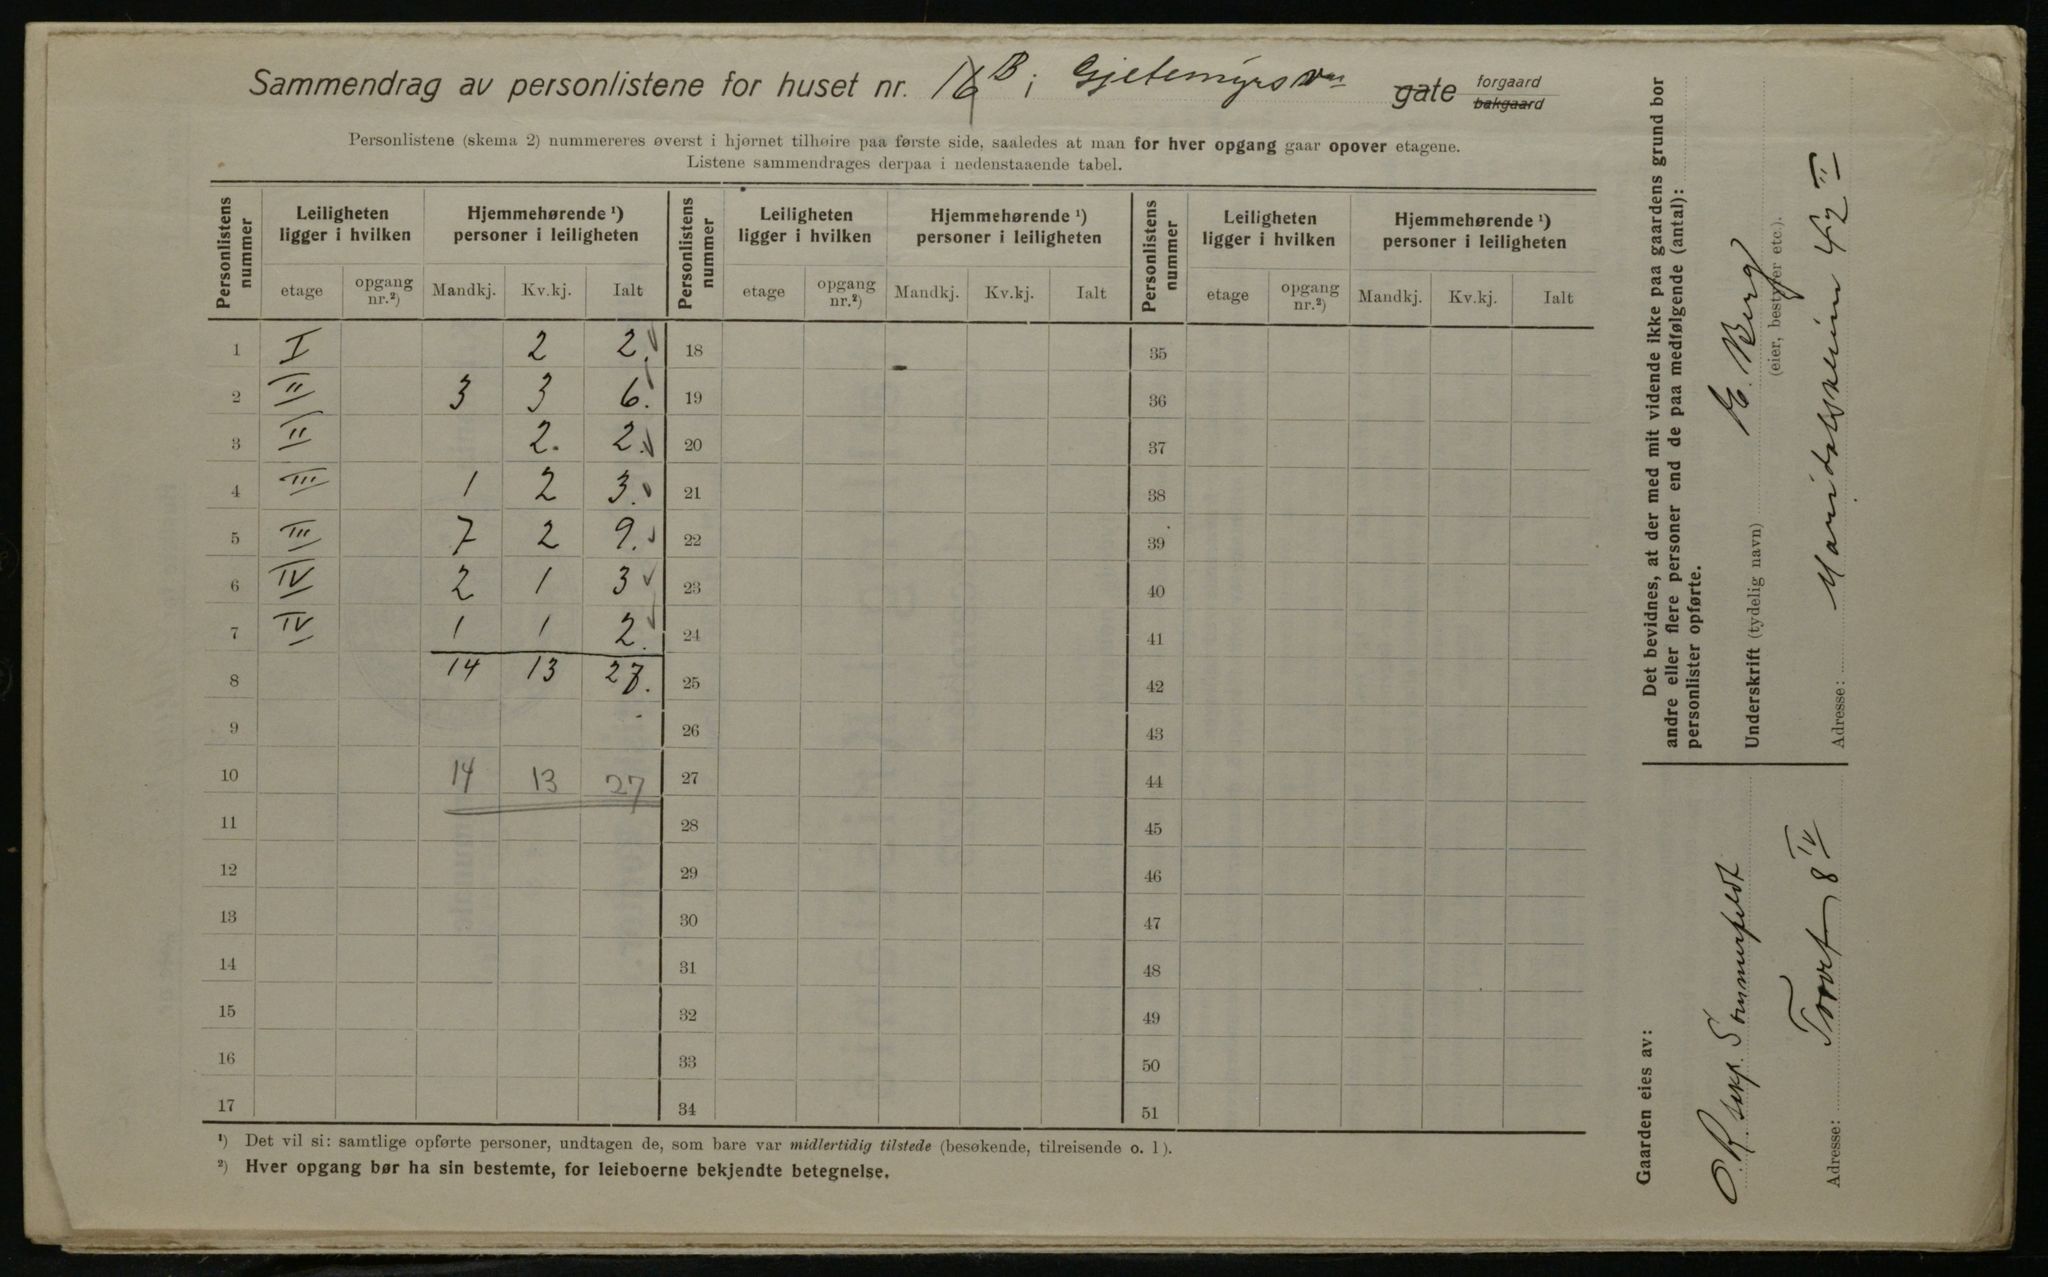 Sammendrag av personlistene for huset nr. 16B i Gjetemyrsvn gate forgaard bakgaard
Personlistene (skema 2) nummereres øverst i hjørnet tilhøire paa første side, saaledes at man for hver opgang gaar opover etagene.
Listene sammendrages derpaa i nedenstaaende tabel.
Personlistens nummer | Leiligheten ligger i hvilken | Hjemmehørende ¹) personer i leiligheten | Personlistens nummer | Leiligheten ligger i hvilken | Hjemmehørende ¹) personer i leiligheten | Personlistens nummer | Leiligheten ligger i hvilken | Hjemmehørende ¹) personer i leiligheten
etage | opgang nr.²) | Mandkj. | Kv.kj. | Ialt | etage | opgang nr.²) | Mandkj. | Kv.kj. | Ialt | etage | opgang nr.²) | Mandkj. | Kv.kj. | Ialt
1 I 2 2. 18 35
2 II 3 3 6. 19 36
3 II 2. 2. 20 37
4 III 1 2 3. 21 38
5 III 7 2 9. 22 39
6 IV 2 1 3 23 40
7 IV 1 1 2. 24 41
8 14 13 27. 25 42
9 26 43
10 14 13 27 27 44
11 28 45
12 29 46
13 30 47
14 31 48
15 32 49
16 33 50
17 34 51
¹) Det vil si: samtlige opførte personer, undtagen de, som bare var midlertidig tilstede (besøkende, tilreisende o. l).
²) Hver opgang bør ha sin bestemte, for leieboerne bekjendte betegnelse.
Det bevidnes, at der med mit vidende ikke paa gaardens grund bor
andre eller flere personer end de paa medfølgende (antal):
personlister opførte.
Underskrift (tydelig navn) E. Berg
(eier, bestyrer etc.).
Adresse: Maridalsveien 42 II
Gaarden eies av:
Sommerfeldt
Adresse: Torvet 8 IV